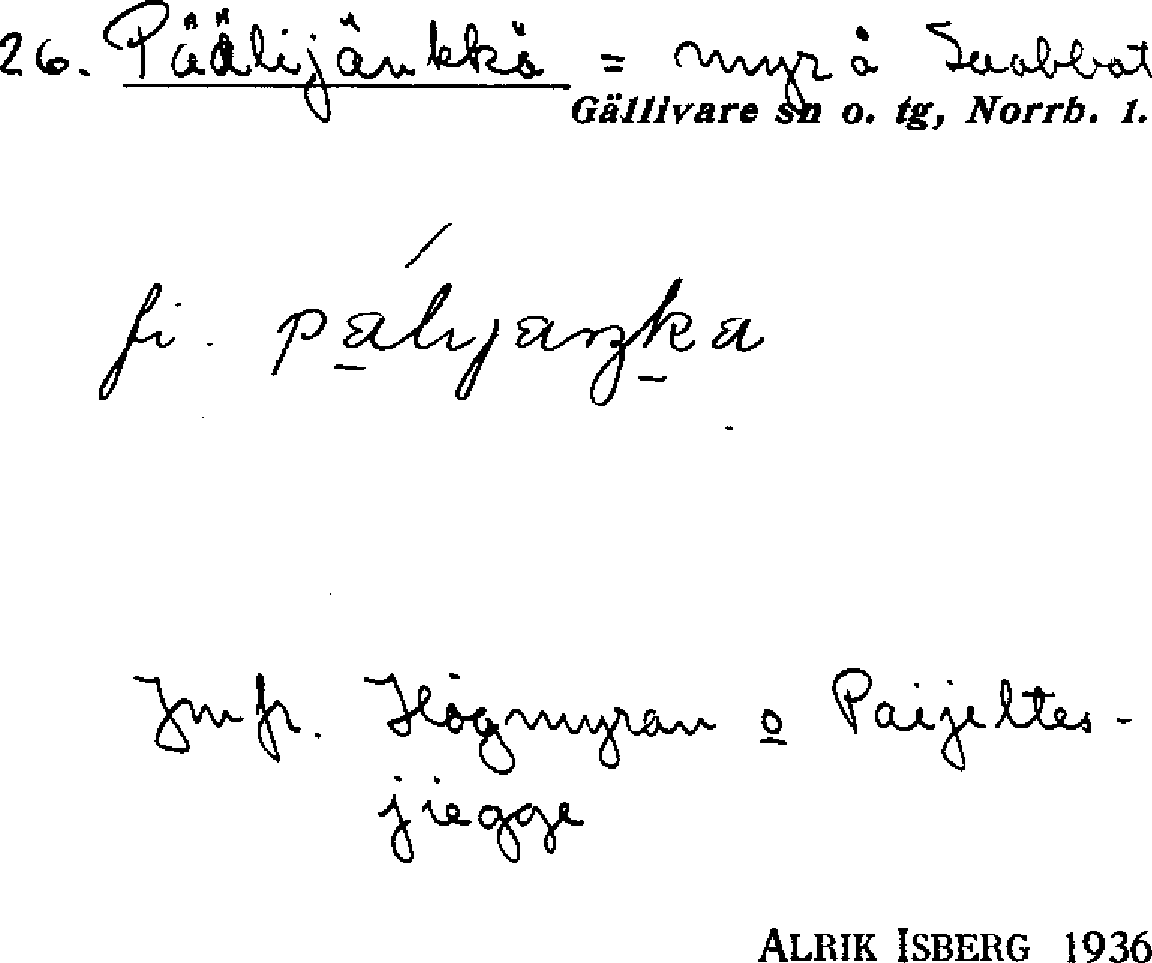 26. Päälijänkkä = myr å Saabbat
Gällivare sn o. tg, Norrb. 1.
fi.
Jmfr. Högmyran o Paijeltes-
jiegge
ALRIK ISBERG 1936